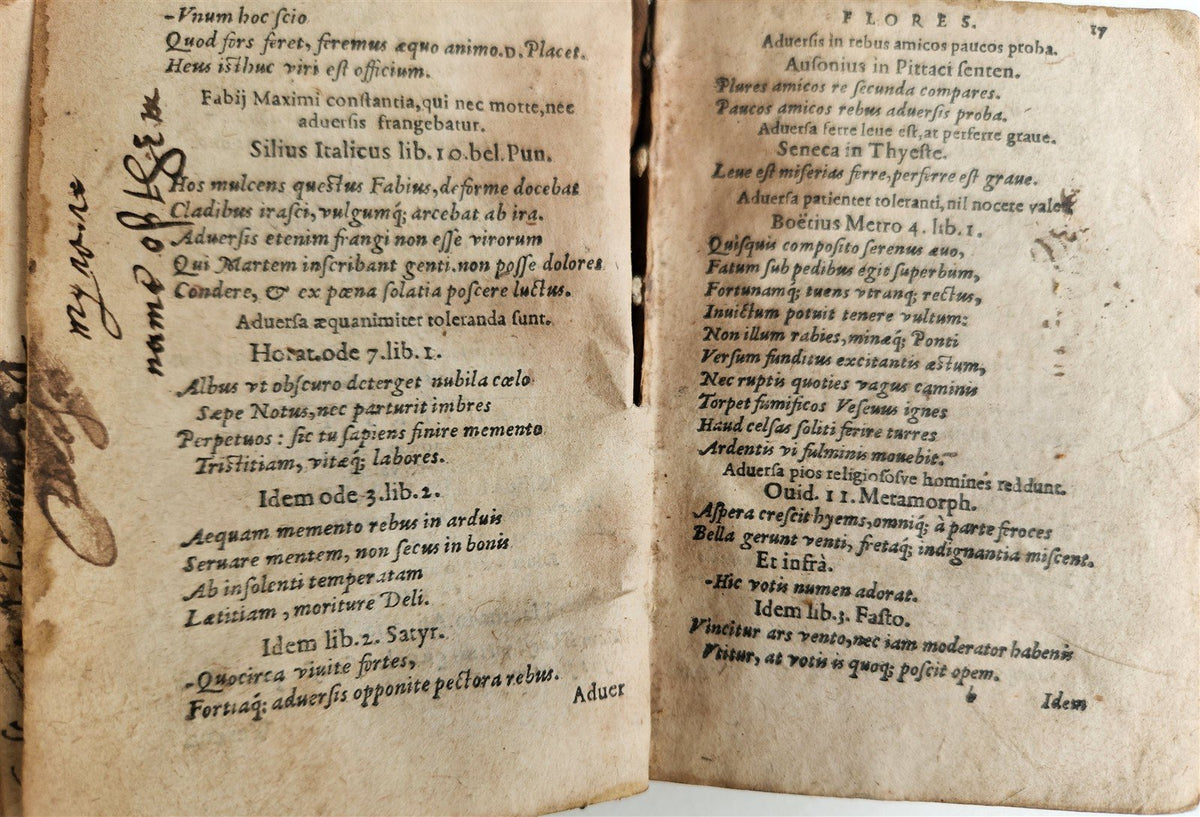 -Vnum hoc ſcio
Quod fors feret, feremus æquo animo. D. Placet.
Heus iſthuc viri eſt officium.
Fabij Maximi conſtantia, qui nec morte, nec
aduerſis frangebatur.
Silius Italicus lib. 10. bel. Pun.
Hos mulcens queſtus Fabius, deforme docebat
Cladibus iraſci, vulgumq́; arcebat ab ira.
Aduerſis etenim frangi non eſſe virorum
Qui Martem inſcribant genti. non poſſe dolores
Condere, & ex pœna ſolatia poſcere luctus.
Aduerſa æquanimiter toleranda ſunt.
Horat. ode 7. lib. 1.
Albus vt obſcuro deterget nubila cœlo
Sæpe Notus, nec parturit imbres
Perpetuos : ſic tu ſapiens finire memento
Triſtitiam, vitæq́; labores.
Idem ode 3. lib. 2.
Aequam memento rebus in arduis
Seruare mentem, non ſecus in bonis
Ab inſolenti temperatam
Lætitiam, moriture Deli.
Idem lib. 2. Satyr.
-Quocirca viuite fortes,
Fortiaq́; aduerſis opponite pectora rebus.
Aduer
my
name
FLORES. 17
Aduerſis in rebus amicos paucos proba.
Auſonius in Pittaci ſenten.
Plures amicos re ſecunda compares.
Paucos amicos rebus aduerſis proba.
Aduerſa ferre leue eſt, at perferre graue.
Seneca in Thyeſte.
Leue eſt miſerias ferre, perferre eſt graue.
Aduerſa patienter toleranti, nil nocere valet
Boëtius Metro 4. lib. 1.
Quiſquis compoſito ſerenus æuo,
Fatum ſub pedibus egit ſuperbum,
Fortunamq́; tuens vtranq; rectus,
Inuictum potuit tenere vultum:
Non illum rabies, minæq́; Ponti
Verſum funditus excitantis æſtum,
Nec ruptis quoties vagus caminis
Torpet fumificos Veſeuus ignes
Haud celſas ſoliti ferire turres
Ardentis vi fulminis mouebit.
Aduerſa pios religioſoſve homines reddunt.
Ouid. 11. Metamorph.
Aſpera creſcit hyems, omniq́; à parte feroces
Bella gerunt venti, fretaq́; indignantia miſcent.
Et infrà.
-Hic votis numen adorat.
Idem lib. 3. Faſto.
Vincitur ars vento, nec iam moderator habenis
Vtitur, at votis is quoq; poſcit opem.
b Idem